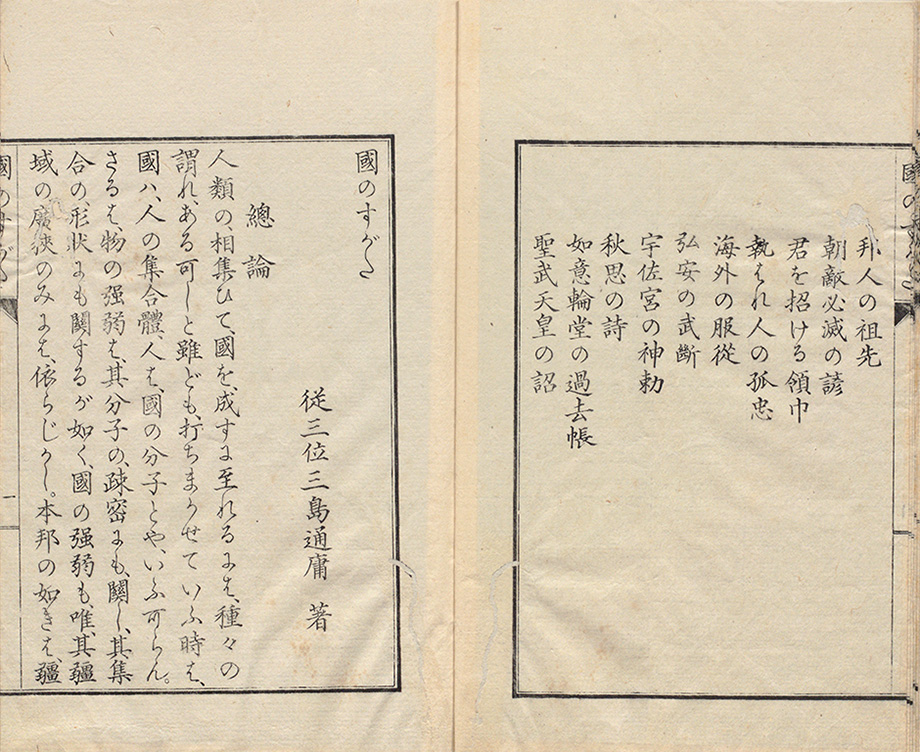 國のすがた
邦人の祖先
朝敵必滅の諺
君を招ける領巾
執はれ人の孤忠
海外の服從
弘安の武斷
宇佐宮の神勅
秋思の詩
如意輪堂の過去帳
聖武天皇の詔
國のすがた
從三位三島通庸 著
總論
人類の、相集ひて、國を、成すに至れるには、種々の
謂れ、ある可しと雖ども、打ちまかせていふ時は、
國ハ、人の集合體、人は、國の分子とや、いふ可らん。
さるは、物の强弱は、其分子の、疎密にも、關し、其集
合の、形狀にも關するが如く、國の强弱も、唯、其疆
域の廣狹のみには、依らじかし。本邦の如きは、疆
國のすがた
一